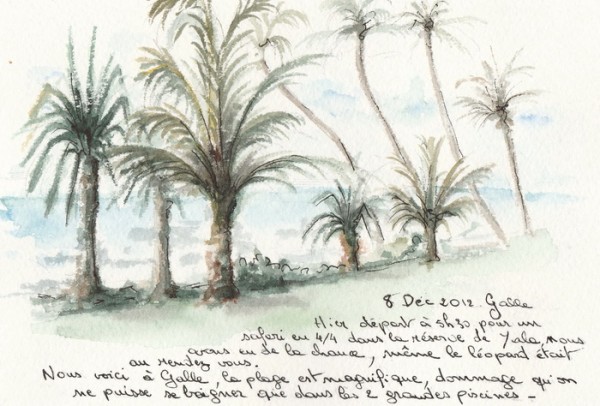 8 Déc 2012. Galle
Hier départ à 5h30 pour un
safari en 4/4 dans la réserve de Yala, nous
avons eu de la chance, même le léopard était
au rendez vous.
Nous voici à Galle, la plage est magnifique, dommage qu'on
ne puisse se baigner que dans les 2 grandes piscines -